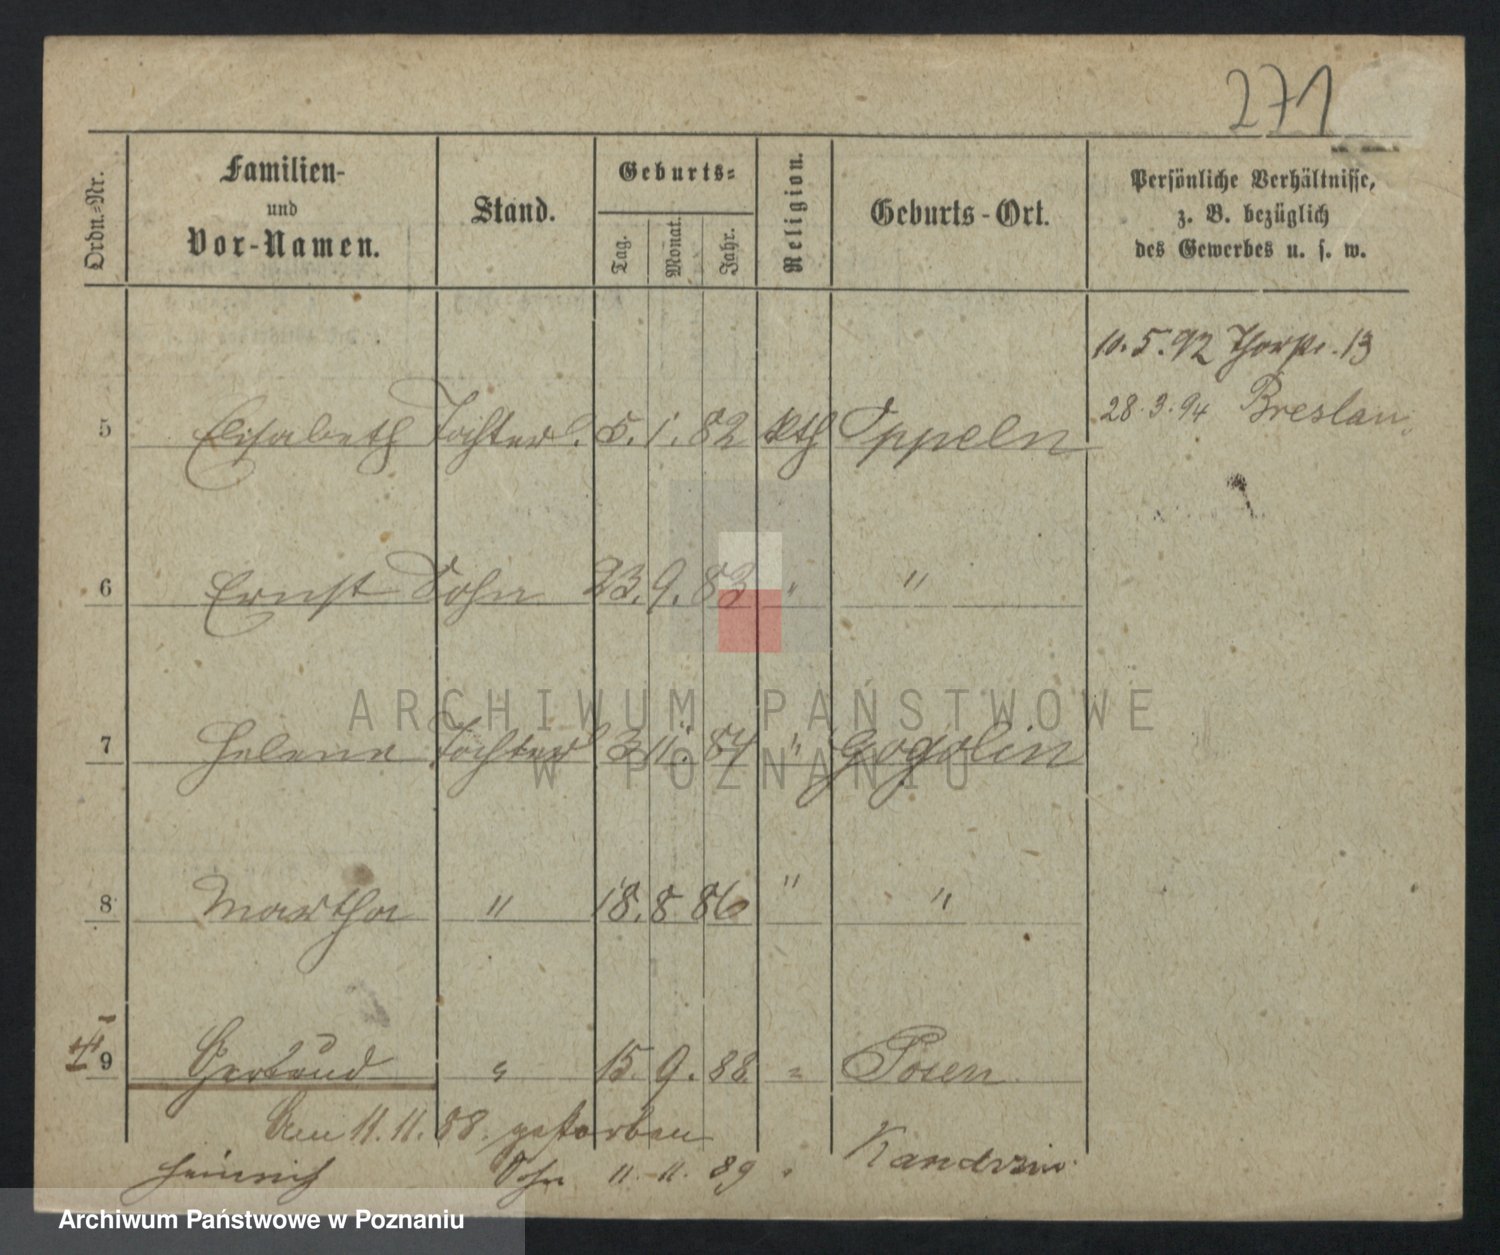 271
Ordn.-Nr.
Familien-
und
Vor-Namen.
Stand.
Geburts-
Tag.
Monat.
Jahr.
Religion.
Geburts-Ort.
Persönliche Verhältnisse,
z. B. bezüglich
des Gewerbes u. s. w.
10.5.92 Thorstr. 13
28.3.94 Breslau.
5 Elisabeth Tochter 5. 1. 82 kth Oppeln
6 Ernst Sohn 23. 9. 83 " "
7 Helene Tochter 3. 11. 84 " Gogolin
8 Martha " 18. 8. 86 " "
9 Gertrud " 15. 9. 88. " Posen
Am 11.11.88. gestorben
Heinrich Sohn 11. 11. 89 " Kandrzin
ARCHIWUM PAŃSTWOWE
W POZNANIU
Archiwum Państwowe w Poznaniu